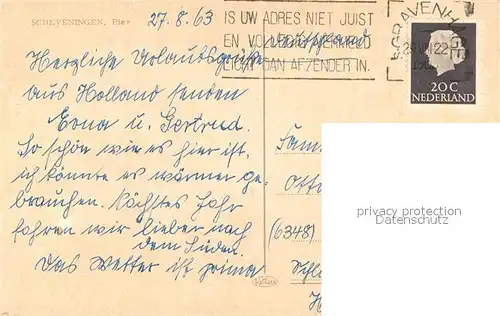 SCHEVENINGEN, Pier
27.8.63
IS UW ADRES NIET JUIST
EN VOLLEDIG VERMELD
LICHT DAN AFZENDER IN.
'S-GRAVENHAGE
20 C
NEDERLAND
Deutschland
Herzliche Urlaubsgrüße
aus Holland senden
Erna u. Gertrud.
So schön wie es hier ist,
ich könnte es wärmer ge-
brauchen. Nächstes Jahr
fahren wir lieber nach
dem Süden.
Das Wetter ist prima
Fam
Otto
(6348)
privacy protection
Datenschutz